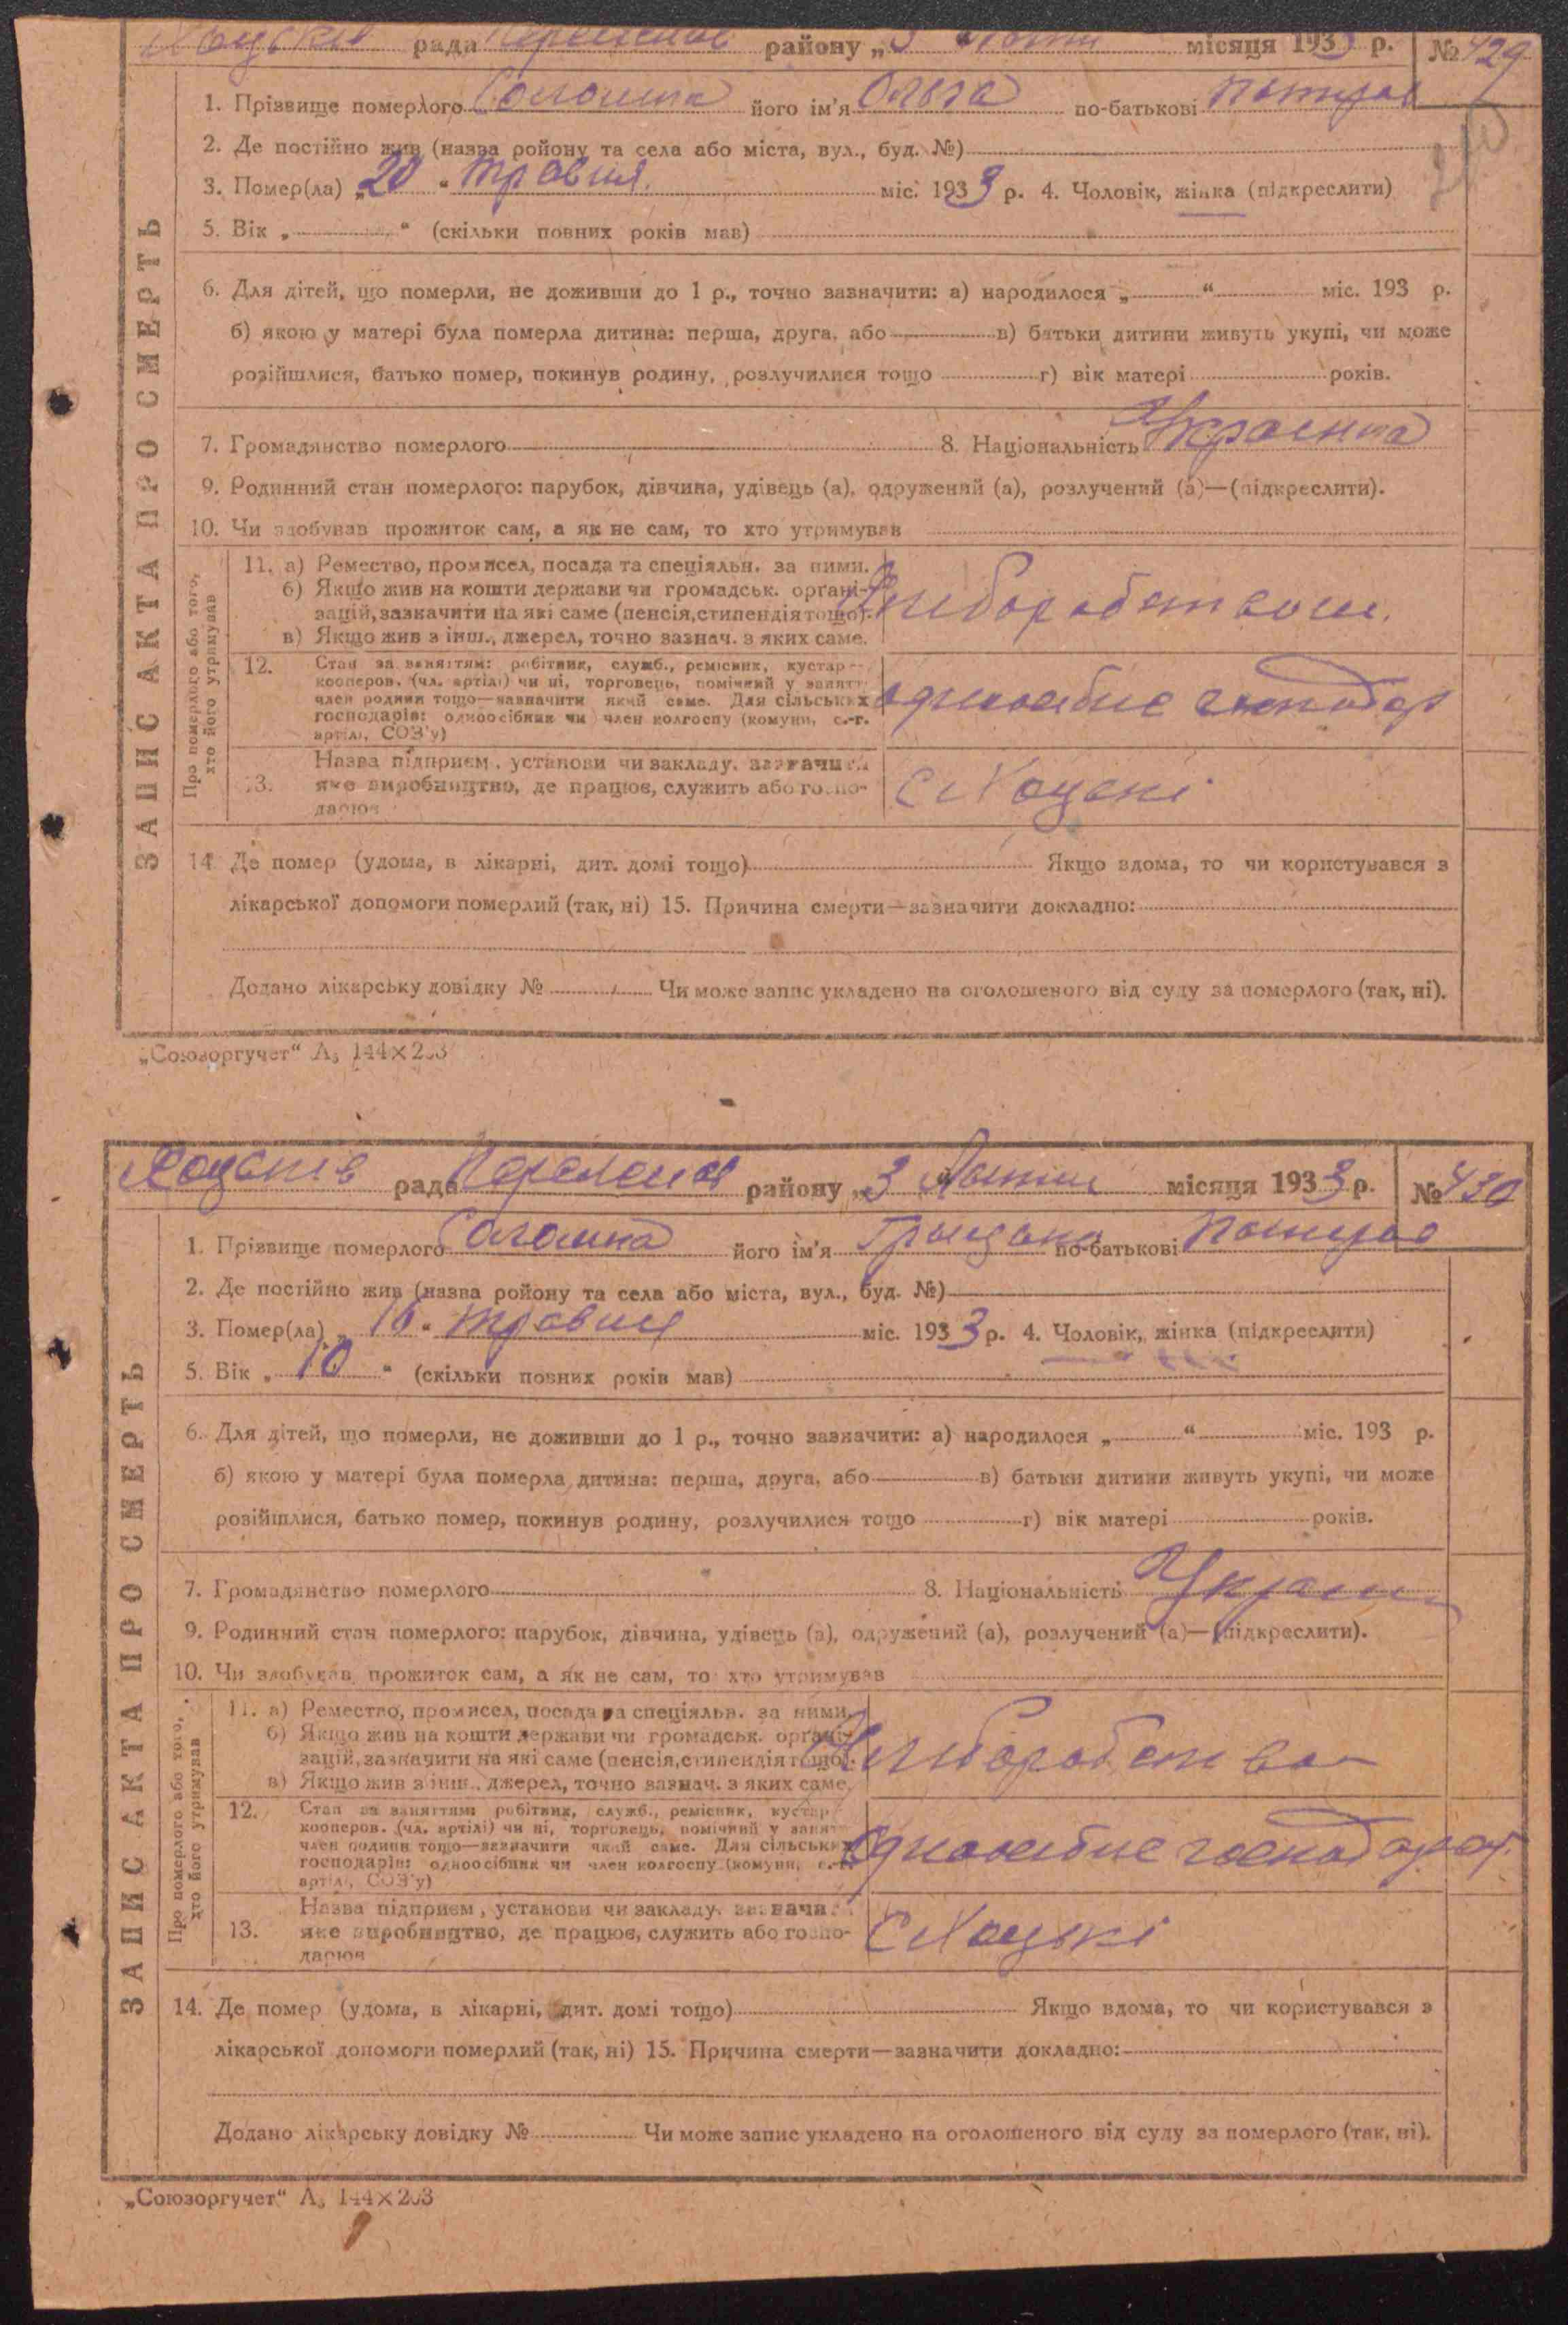 рада району „3 місяця 1933 р. № 429
1. Прізвище померлого Солошна його ім'я Ольга по-батькові
2. Де постійно жив (назва ройону та села або міста, вул., буд. №)
3. Помер(ла) „20“ травня міс. 1933 р. 4. Чоловік, жінка (підкреслити)
5. Вік „ “ (скільки повних років мав)
6. Для дітей, що померли, не доживши до 1 р., точно зазначити: а) народилося „ “ міс. 193 р.
б) якою у матері була померла дитина: перша, друга, або в) батьки дитини живуть укупі, чи може
розійшлися, батько помер, покинув родину, розлучилися тощо г) вік матері років.
7. Громадянство померлого 8. Національність
9. Родинний стан померлого: парубок, дівчина, удівець (а), одружений (а), розлучений (а)—(підкреслити).
10. Чи здобував прожиток сам, а як не сам, то хто утримував
Про померлого або того, хто його утримував
11. а) Ремество, промисел, посада та спеціяльн. за ними.
б) Якщо жив на кошти держави чи громадськ. органі-
зацій, зазначити на які саме (пенсія, стипендія тощо).
в) Якщо жив з інш., джерел, точно зазнач. з яких саме.
12. Стан за заняттям: робітник, служб., ремісник, кустар
кооперов. (чл. артілі) чи ні, торговець, помічний у занятт
член родини тощо—зазначити який саме. Для сільських
господарів: одноосібник чи член колгоспу (комуни, с.-г.
артілі, СОЗ'у)
одноосібне
13. Назва підприєм., установи чи закладу, зазначити
яке виробництво, де працює, служить або госпо-
дарює
с Хоцькі
14. Де помер (удома, в лікарні, дит. домі тощо) Якщо вдома, то чи користувався з
лікарської допомоги померлий (так, ні) 15. Причина смерти—зазначити докладно:
Додано лікарську довідку № Чи може запис укладено на оголошеного від суду за померлого (так, ні).
ЗАПИС АКТА ПРО СМЕРТЬ
„Союзоргучет“ А₅ 144×203
рада району „3 місяця 1933 р. № 430
1. Прізвище померлого Солошна його ім'я по-батькові
2. Де постійно жив (назва ройону та села або міста, вул., буд. №)
3. Помер(ла) „16“ травня міс. 1933 р. 4. Чоловік, жінка (підкреслити)
5. Вік „10“ (скільки повних років мав)
6. Для дітей, що померли, не доживши до 1 р., точно зазначити: а) народилося „ “ міс. 193 р.
б) якою у матері була померла дитина: перша, друга, або в) батьки дитини живуть укупі, чи може
розійшлися, батько помер, покинув родину, розлучилися тощо г) вік матері років.
7. Громадянство померлого 8. Національність
9. Родинний стан померлого: парубок, дівчина, удівець (а), одружений (а), розлучений (а)—(підкреслити).
10. Чи здобував прожиток сам, а як не сам, то хто утримував
Про померлого або того, хто його утримував
11. а) Ремество, промисел, посада та спеціяльн. за ними.
б) Якщо жив на кошти держави чи громадськ. органі-
зацій, зазначити на які саме (пенсія, стипендія тощо).
в) Якщо жив з інш., джерел, точно зазнач. з яких саме.
Хліборобство
12. Стан за заняттям: робітник, служб., ремісник, кустар
кооперов. (чл. артілі) чи ні, торговець, помічний у занятт
член родини тощо—зазначити який саме. Для сільських
господарів: одноосібник чи член колгоспу (комуни, с.-г.
артілі, СОЗ'у)
одноосібне
13. Назва підприєм., установи чи закладу, зазначи
яке виробництво, де працює, служить або госпо-
дарює
с Хоцькі
14. Де помер (удома, в лікарні, дит. домі тощо) Якщо вдома, то чи користувався з
лікарської допомоги померлий (так, ні) 15. Причина смерти—зазначити докладно:
Додано лікарську довідку № Чи може запис укладено на оголошеного від суду за померлого (так, ні).
ЗАПИС АКТА ПРО СМЕРТЬ
„Союзоргучет“ А₅ 144×203